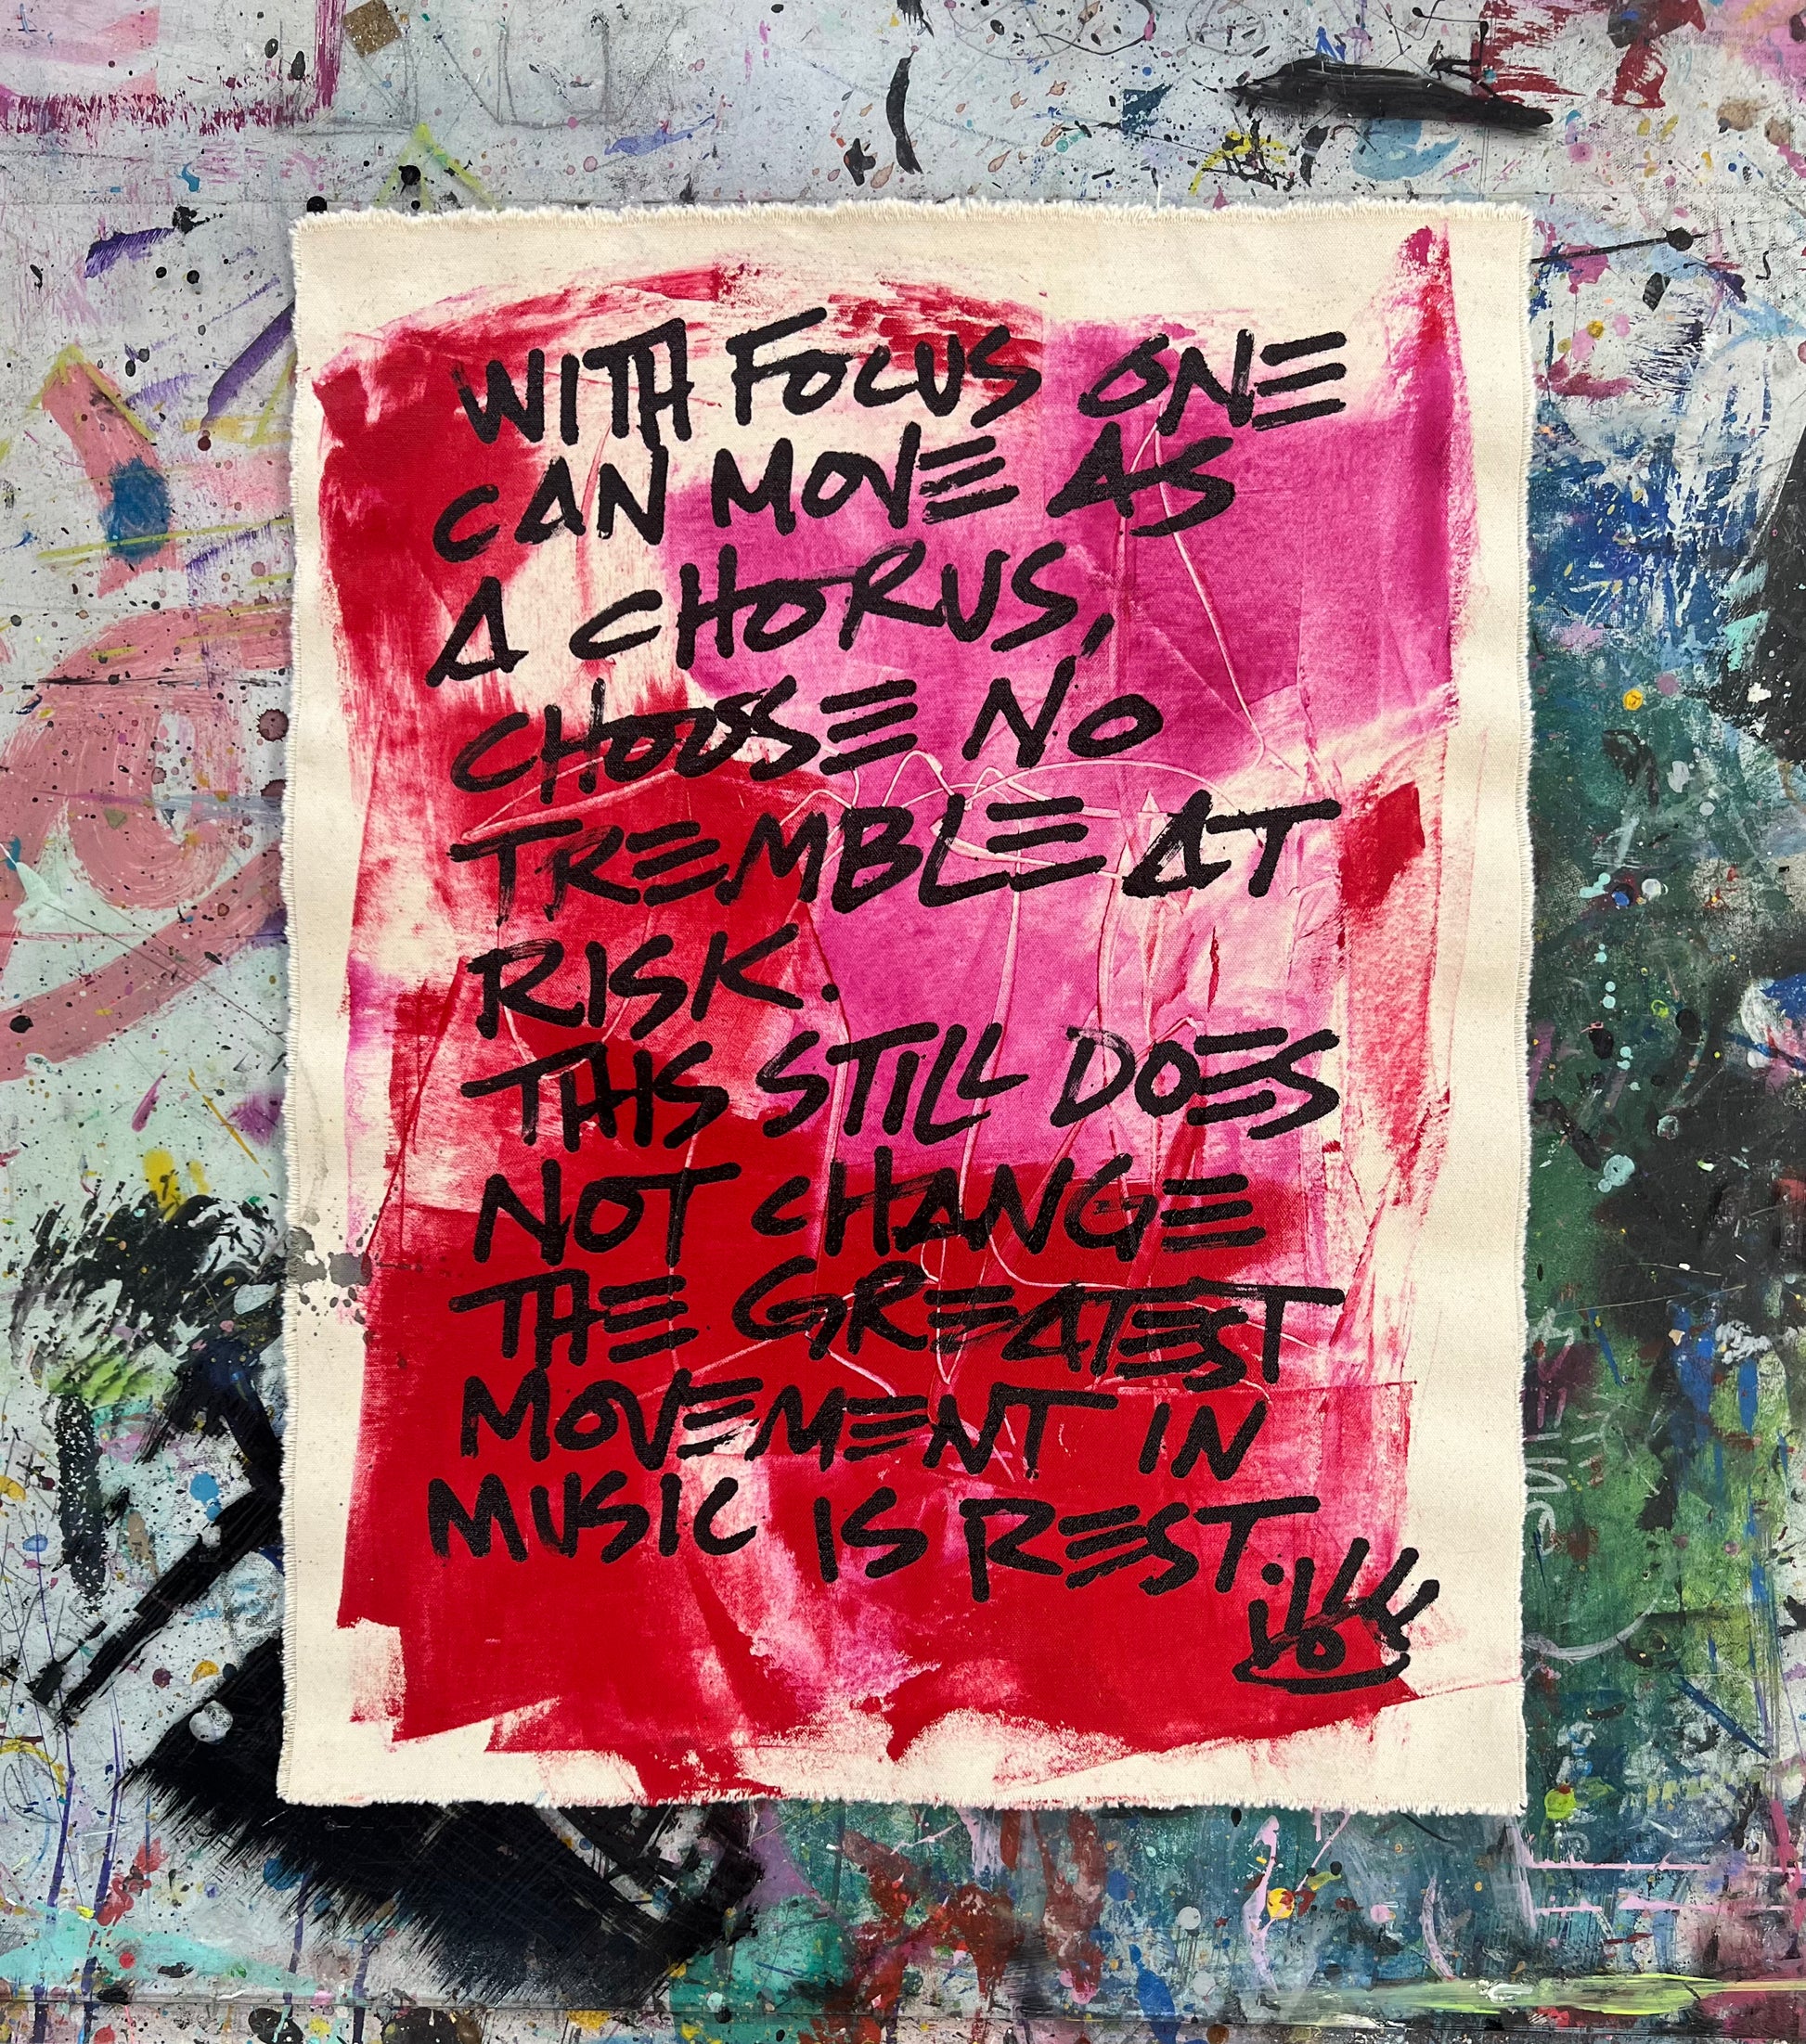 WITH FOCUS ONE
CAN MOVE AS
A CHORUS,
CHOOSE NO
TREMBLE AT
RISK.
THIS STILL DOES
NOT CHANGE
THE GREATEST
MOVEMENT IN
MUSIC IS REST.